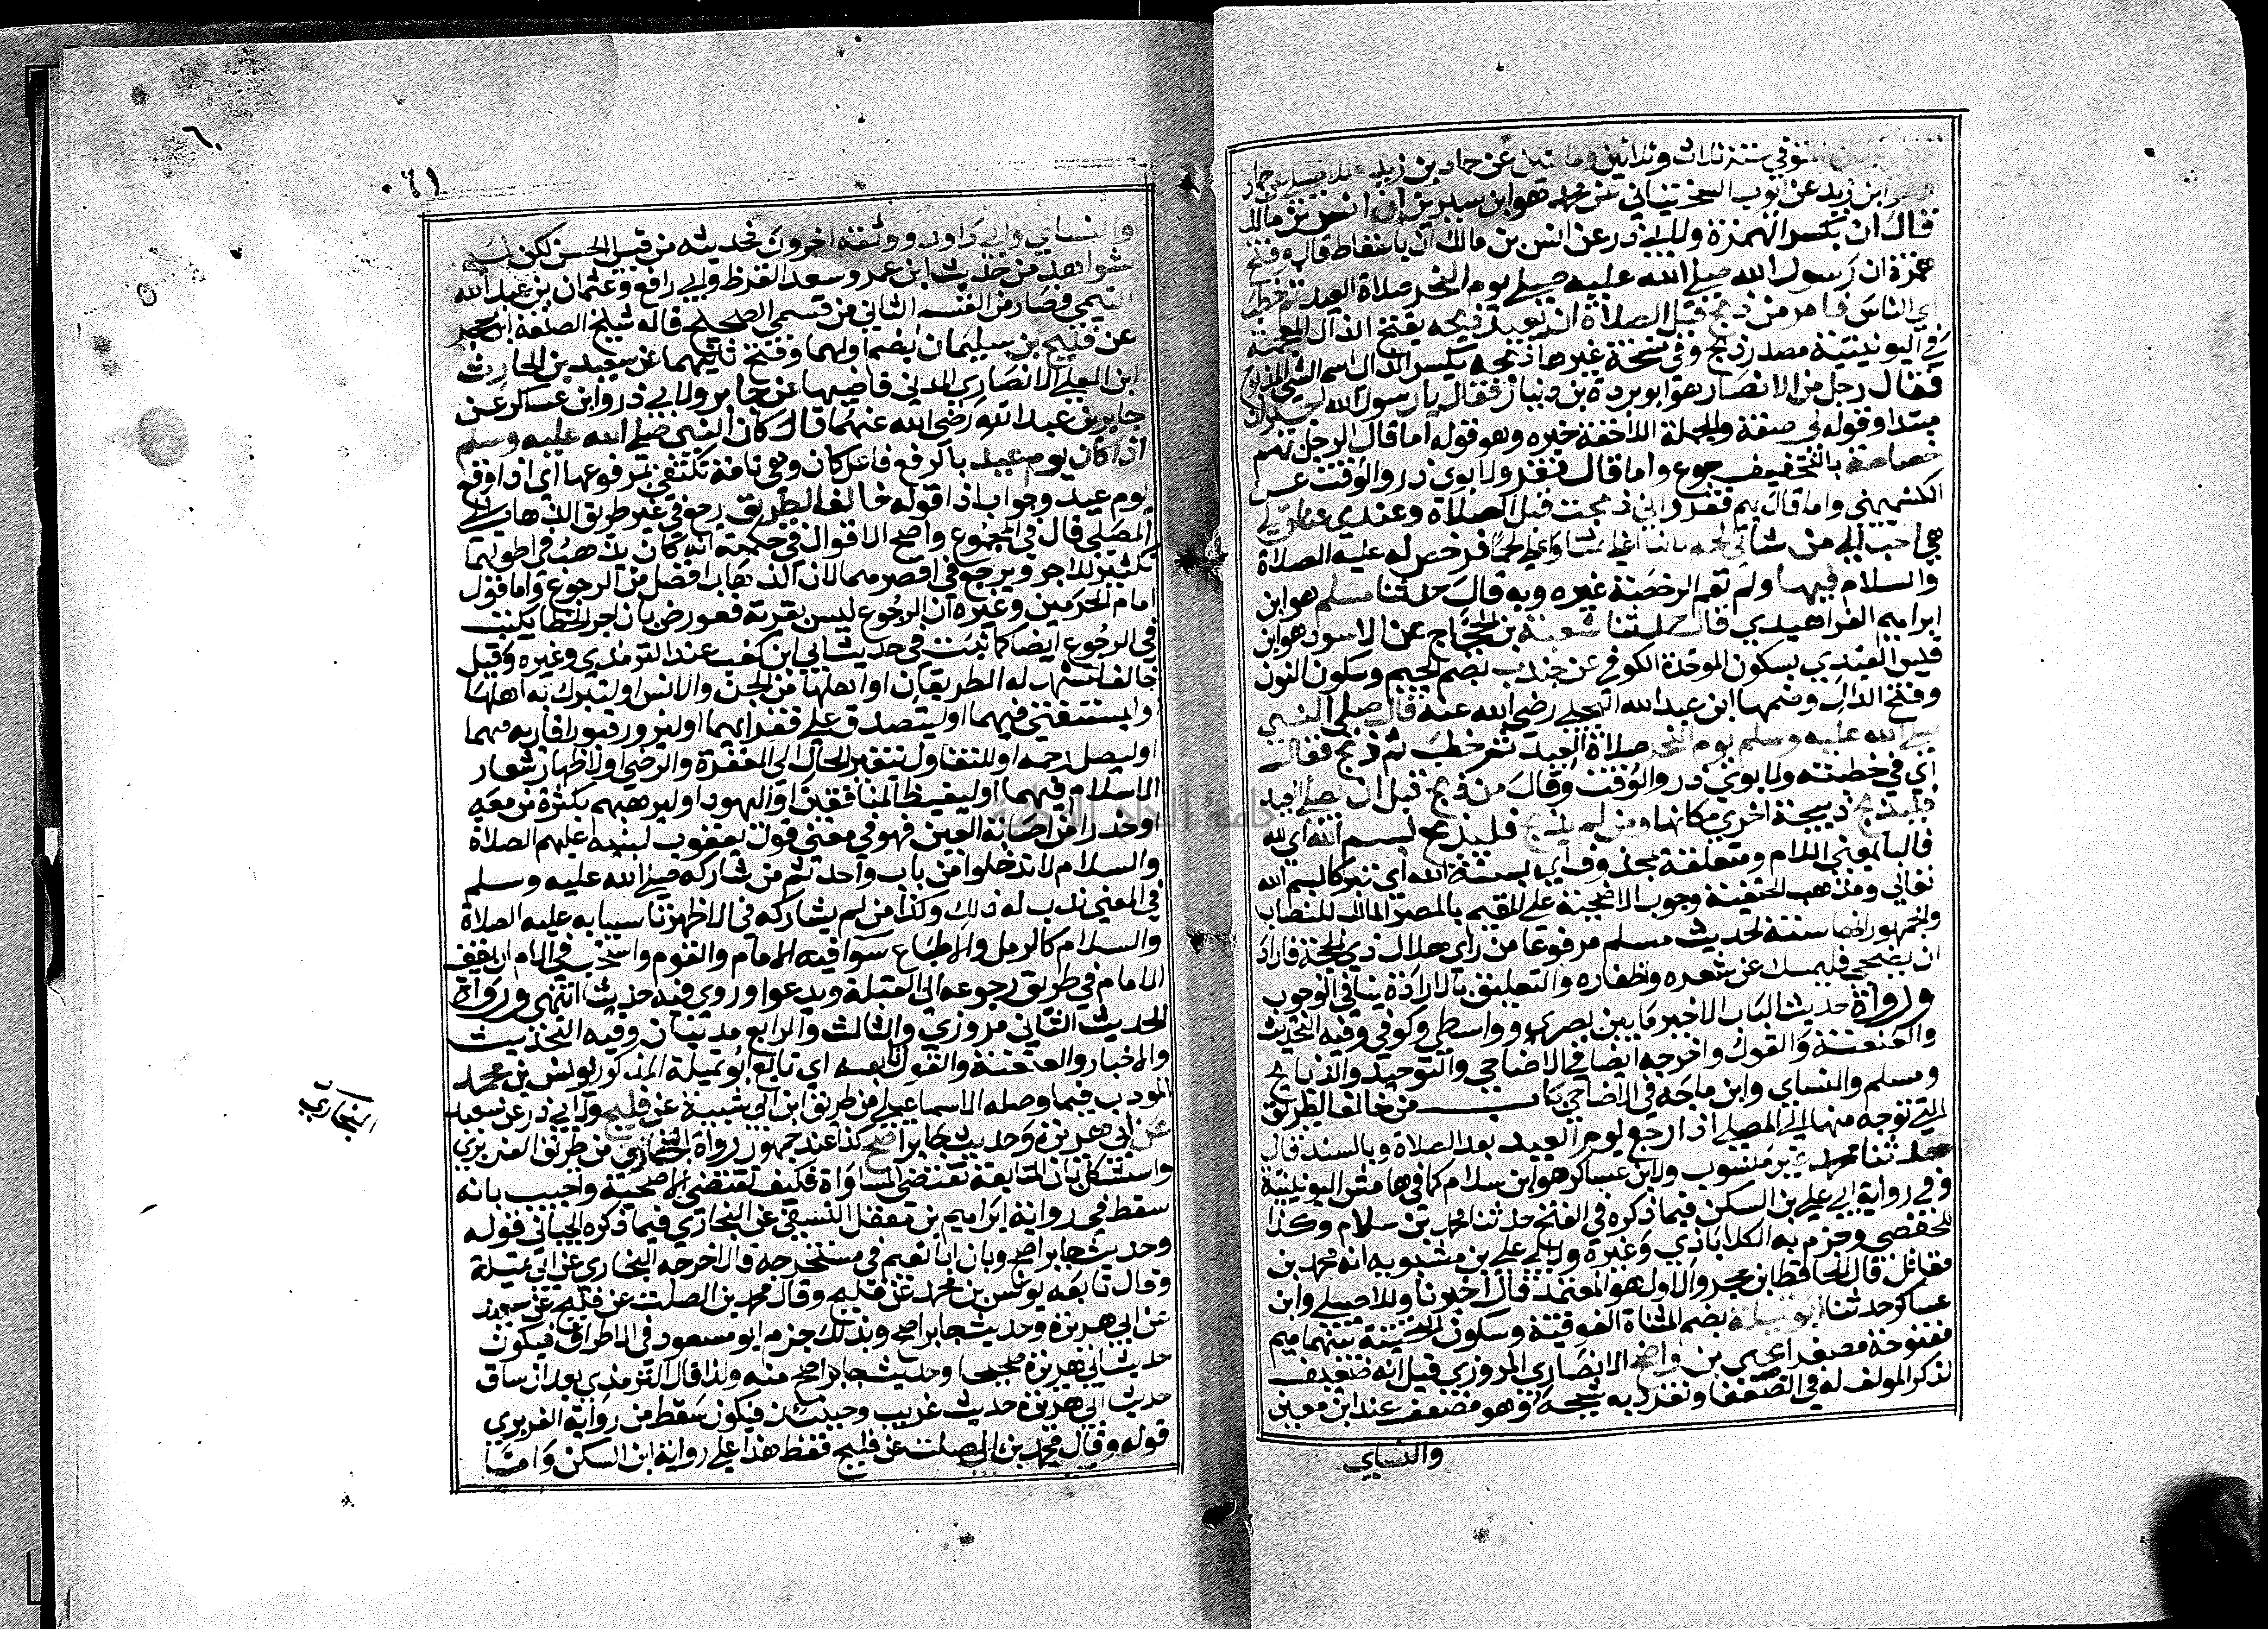 المتوفي سنة ثلاث وثلاثين ومائتين عن حماد بن زيد وللاصيلي حماد
هو ابن زيد عن ايوب السختياني عن محمد هو ابن سيرين ان انس بن مالك
قال ان بكسر الهمزة ولابي ذر عن انس بن مالك ان باسقاط قال وفتح
همزة ان رسول الله صلى الله عليه صلى يوم النحر صلاة العيد ثم خطب
اي الناس فامر من ذبح قبل الصلاة ان يعيد ذبحه بفتح الذال المعجمة
في اليونينية مصدر ذبح وفي نسخة غيرها ذبحه بكسر الذال اسم الشي المذبوح
فقال رجل من الانصار هو ابو بردة بن نيار فقال يا رسول الله جيران
مبتدا وقوله لي صفة والجملة اللاحقة خبره وهو قوله اما قال الرجل بهم
خصاصة بالتخفيف جوع واما قال فقر ولابوي ذر والوقت عن
الكشميهني واما قال بهم فقر واني ذبحت قبل الصلاة وعندي عناق لي
هي احب الي من شاتي لحم فرخص له عليه الصلاة
والسلام فيها ولم تعم الرخصة غيره وبه قال حدثنا مسلم هو ابن
ابراهيم الفراهيدي قال حدثنا شعبة بن الحجاج عن الاسود هو ابن
قيس العبدي بسكون الموحدة الكوفي عن جندب بضم الجيم وسكون النون
وفتح الدال وضمها ابن عبد الله البجلي رضي الله عنه قال صلى النبي
صلى الله عليه وسلم يوم النحر صلاة العيد ثم خطب ثم ذبح فقال
اي في خطبته ولابوي ذر والوقت وقال من ذبح قبل ان يصلي العيد
فليذبح ذبيحة اخري مكانها ومن لم يذبح فليذبح بسم الله اي لله
فالبا بمعني اللام ومتعلقة بمحذوف اي بسنة الله اي تبركا بسم الله
تعالي ومذهب الحنفية وجوب الاضحية علي المقيم بالمصر المالك للنصاب
والجمهور انها سنة لحديث مسلم مرفوعا من راي هلال ذي الحجة فاراد
ان يضحي فليمسك عن شعره واظفاره والتعليق بالارادة ينافي الوجوب
ورواة حديث الباب الاخير ما بين بصري وواسطي وكوفي وفيه التحديث
والعنعنة والقول واخرجه ايضا في الاضاحي والتوحيد والذبايح
ومسلم والنساي وابن ماجه في الاضاحي باب من خالف الطريق
التي توجه منها الي المصلي اذا رجع يوم العيد بعد الصلاة وبالسند قال
حدثنا محمد غير منسوب ولابن عساكر هو ابن سلام كما في هامش اليونينية
وفي رواية ابي علي بن السكن فيما ذكره في الفتح حدثنا محمد بن سلام وكذا
للحفصي وجزم به الكلاباذي وغيره ولابي علي بن شبويه انه محمد بن
مقاتل قال الحافظ ابن حجر والاول هو المعتمد قال اخبرنا وللاصيلي وابن
عساكر حدثنا ابو تميلة بضم المثناة الفوقية وسكون التحتية بينهما ميم
مفتوحة مصغرا يحيي بن واضح الانصاري المروزي قيل انه ضعيف
لذكر المولف له في الضعفا وتفرد به شيخه وهو مضعف عند ابن معين
والنساي
٦١
والنساي وابي داود ووثقه اخرون فحديثه من قبيل الحسن لكن له
شواهد من حديث ابن عمر وسعد القرظ وابي رافع وعثمان بن عبد الله
التيمي فصار من القسم الثاني من قسمي الصحيح قاله شيخ الصنعة ابن حجر
عن فليح بن سليمان بضم اولهما وفتح ثانيهما عن سعيد بن الحارث
ابن المعلي الانصاري المدني قاضيها عن جابر ولابي ذر وابن عساكر عن
جابر بن عبد الله رضي الله عنهما قال كان النبي صلى الله عليه وسلم
اذا كان يوم عيد بالرفع فاعل كان وهي تامة تكتفي بمرفوعها اي اذا وقع
يوم عيد وجواب اذا قوله خالف الطريق رجع في غير طريق الذهاب الي
المصلي قال في المجموع واصح الاقوال في حكمته انه كان يذهب في اطولهما
تكثيرا للاجر ويرجع في اقصرهما لان الذهاب افضل من الرجوع واما قول
امام الحرمين وغيره ان الرجوع ليس بقربة فعورض بان اجر الخطا يكتب
في الرجوع ايضا كما ثبت في حديث ابي ابن كعب عند الترمذي وغيره وقيل
خالف ليشهد له الطريقان او اهلهما من الجن والانس او ليتبرك به اهلها
وليستفتي فيهما او ليتصدق علي فقرايهما او ليزور قبور اقاربه فيهما
او ليصل رحمه او للتفاول بتغير الحال الي المغفرة والرضي او لاظهار شعار
الاسلام فيهما او ليغيظ المنافقين او اليهود او ليرهبهم بكثرة من معه
وحذرا من اصابة العين فهو في معني قول يعقوب لبنيه عليهم الصلاة
والسلام لا تدخلوا من باب واحد ثم من شاركه صلى الله عليه وسلم
في المعني ندب له ذلك وكذا من لم يشاركه في الاظهر تاسيا به عليه الصلاة
والسلام كالرمل والاضطباع سوا فيه الامام والقوم واستحب في الام ان يقف
الامام في طريق رجوعه الي القبلة ويدعوا وروي فيه حديثا انتهي ورواة
الحديث الثاني مروزي والثالث والرابع مدنيان وفيه التحديث
والاخبار والعنعنة والقول تابعه اي تابع ابو تميلة المذكور يونس بن محمد
المودب فيما وصله الاسماعيلي من طريق ابن ابي شيبة عن فليح ولابي ذر عن سعيد
عن ابي هريرة وحديث جابر اصح كذا عند جمهور رواة البخاري من طريق الفربري
البخاري
واستشكل بان المتابعة تقتضي المساواة فكيف تقتضي الاصحية واجيب بانه
سقط في رواية ابراهيم بن معقل النسفي عن البخاري فيما ذكره الجياني قوله
وحديث جابر اصح وبان ابا نعيم في مستخرجه قال اخرجه البخاري عن ابي تميلة
وقال تابعه يونس بن محمد عن فليح وقال محمد بن الصلت عن فليح عن سعيد
عن ابي هريرة وحديث جابر اصح وبذلك جزم ابو مسعود في الاطراف فيكون
حديث ابي هريرة صحيحا وحديث جابر اصح منه ولذا قال الترمذي بعد ان ساق
حديث ابي هريرة حديث غريب وحينئذ فيكون سقط من رواية الفربري
قوله وقال محمد بن الصلت عن فليح فقط هذا علي رواية ابن السكن واما